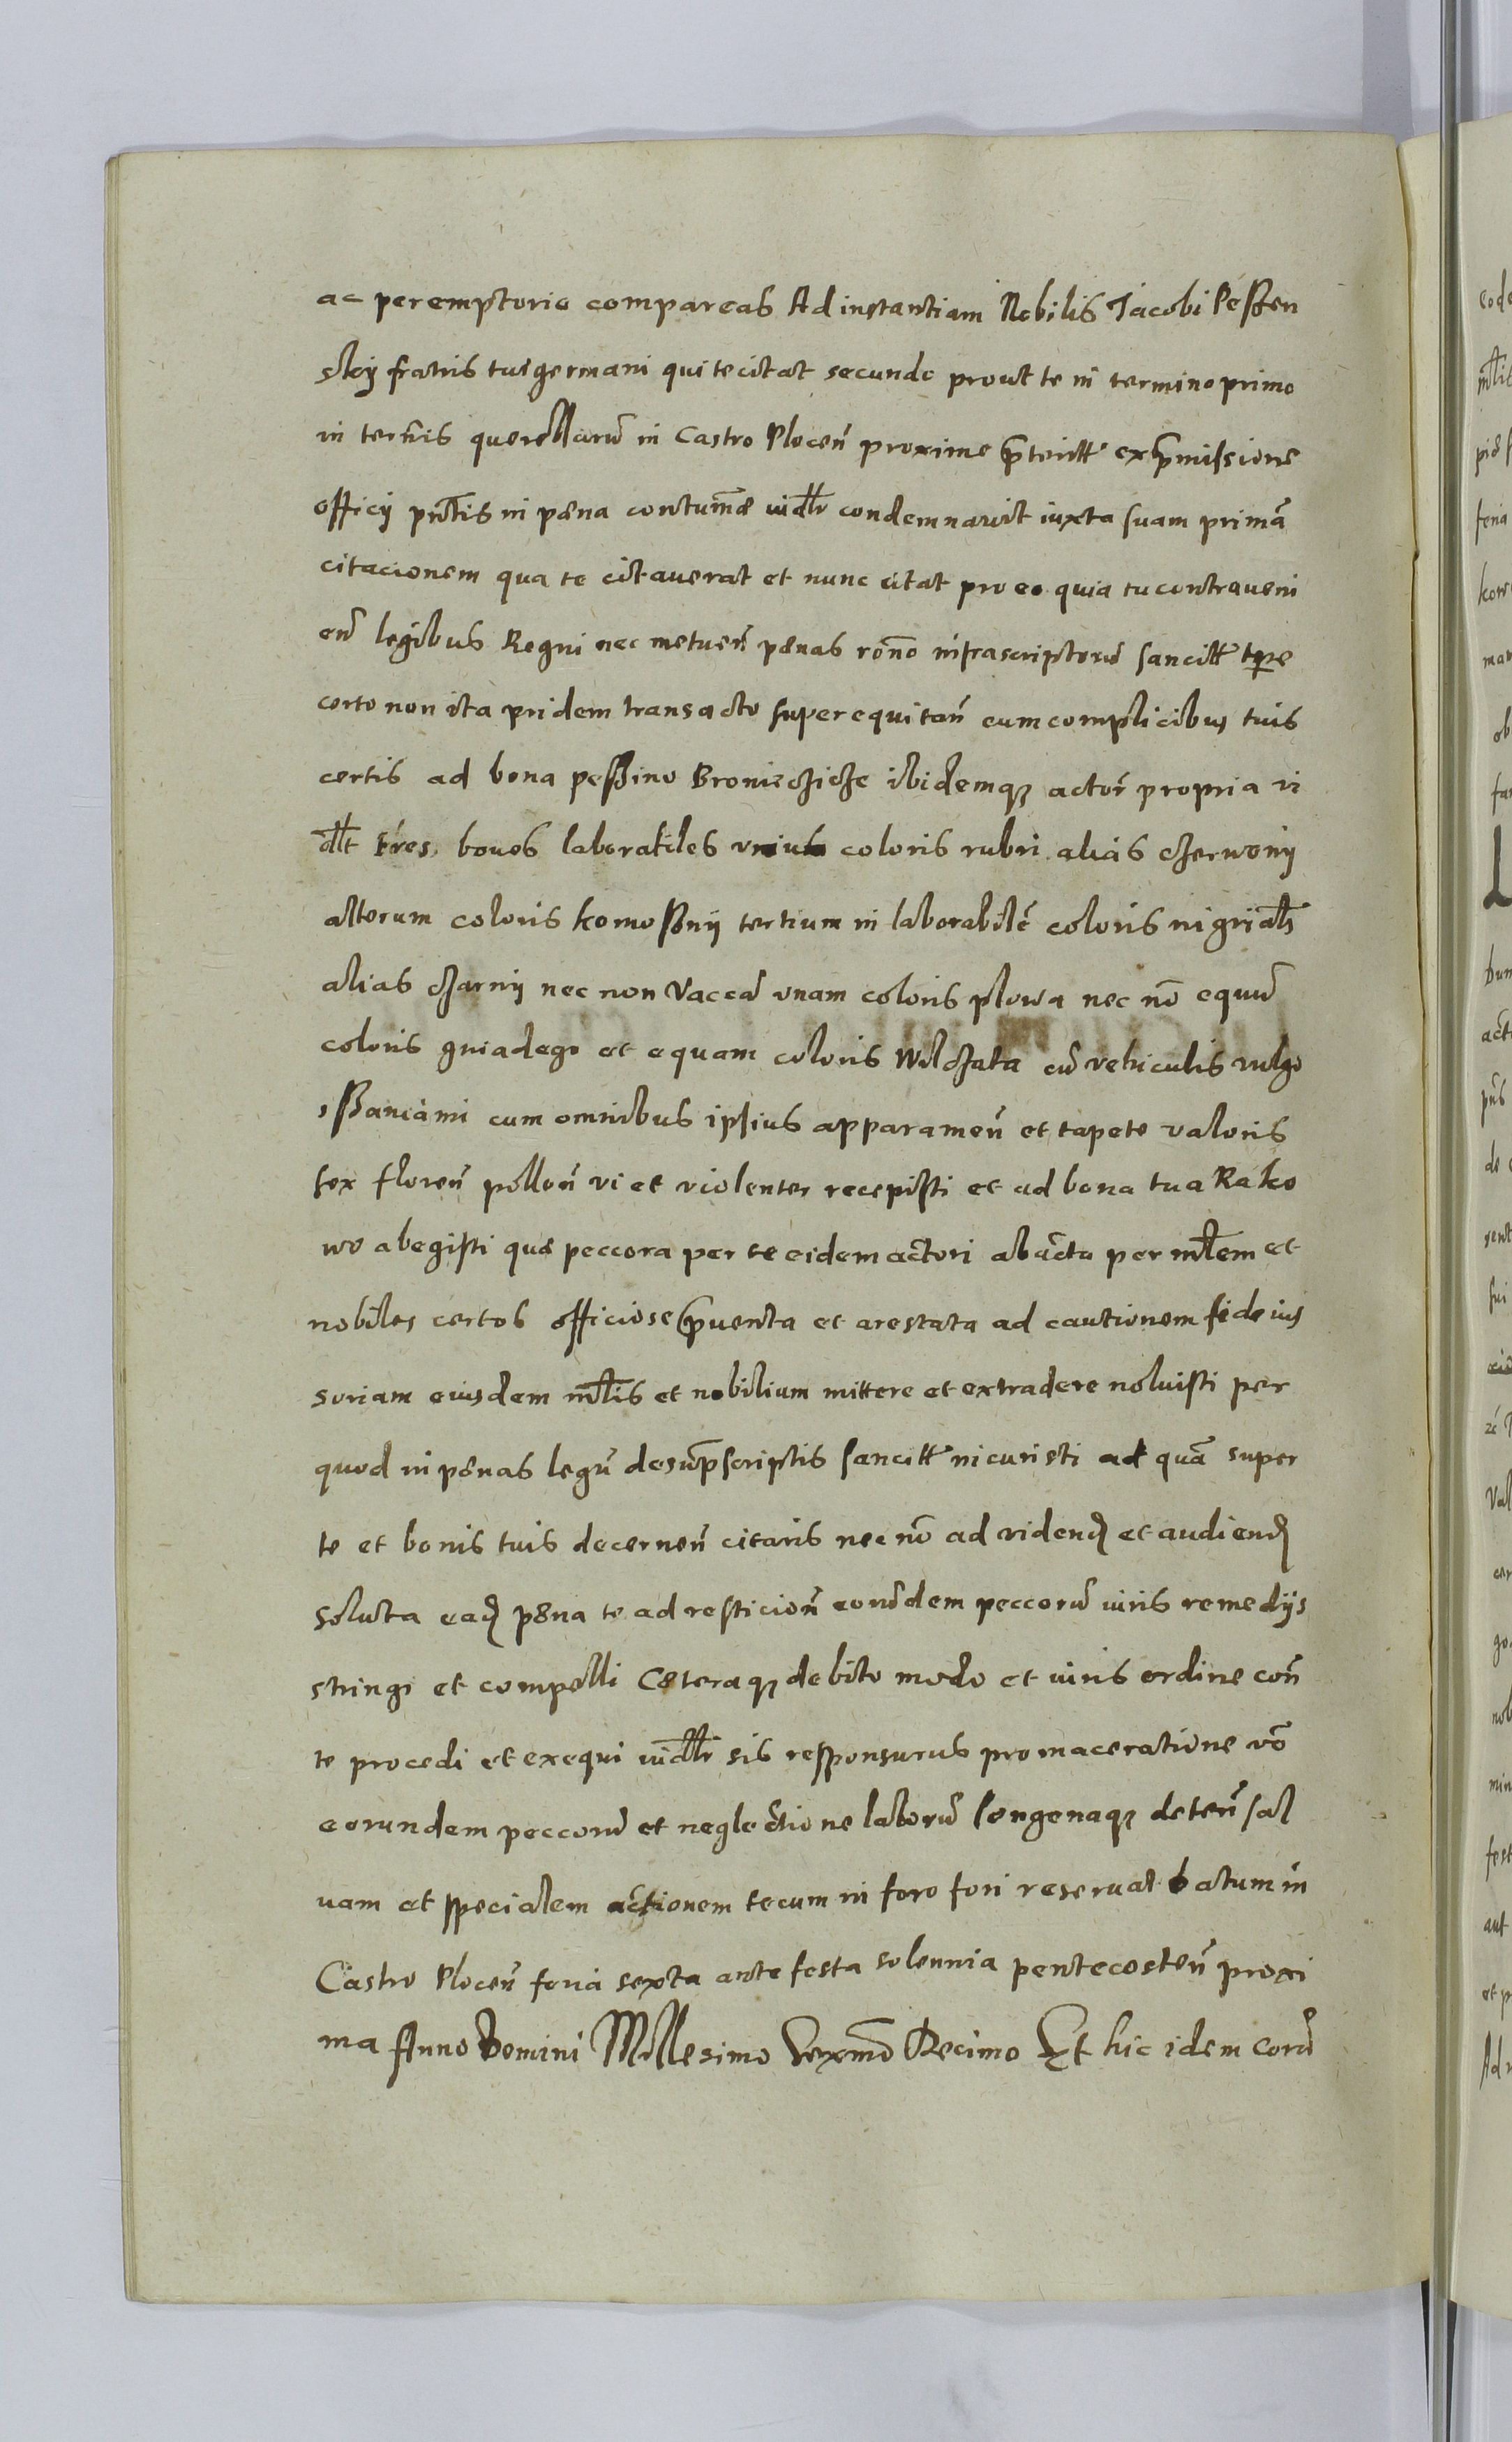 ac peremptorie compareas Ad instantiam Nobilis Jacobi Peßen
skÿ fratris tui germani qui te citat secundo prout te in termino primo
in termis querellarũ in Castro Plocen̄ proxime p̄teritt' ex p̄missione
officÿ pn̄tis in pæna contum̄æ iudl̄r condemnavit iuxta suam primã
citacionem qua te citaverat et nunc citat pro eo quia tu contraueni
en̄ legibus Regni nec metuen̄ pænas ron̄o infrascriptorũ sancitt' tpre
certo non ita pridem transacto superequitan̄ cum complicibus tuis
certis ad bona peßino Bronieczicze ibidemqꝫ actor̄ propria vi
dl̄t tres boues laboratiles vnius coloris rubri alias czerwonÿ
alterum coloris komoßnÿ tertium in laborabilē coloris nigri als
alias czarnÿ nec non Vaccã vnam coloris plowa nec nō equũ
coloris gniadego et equam coloris Wilczata cũ vehiculis vulgo
sßaniami cum omnibus ipsius apparamen̄ et tapete valoris
sex floren̄ pollon̄ vi et violenter recepisti et ad bona tua Rako
wo abegisti quæ peccora per te eidem actori abacta per ml̄tem et
nobiles certos officiose p̄uenta et arestata ad cautionem fideius
soriam eiusdem ml̄tis et nobilium mittere et extradere noluisti per
quod in pænas legũ desup̄scriptis sancitt' incuristi ad quã super
te et bonis tuis decernen̄ citaris nec nō ad videnđ et audienđ
soluta eađ pæna te ad resticion̄ eorũdem peccorũ iuris remedÿs
stringi et compelli Cæteraqꝫ debito modo et iuris ordine con̄
te procedi et exequi iudl̄r sis responsurus pro maceratione vō
eorundem peccorũ et neglectione laborũ longenaqꝫ deten̄ sal
uam et specialem actionem tecum in foro fori reseruat Datum in
Castro Plocen̄ feria sexta ante festa solennia pentecosten̄ proxi
ma Anno Domini Millesimo Sexm̄o Decimo Et hic idem corã